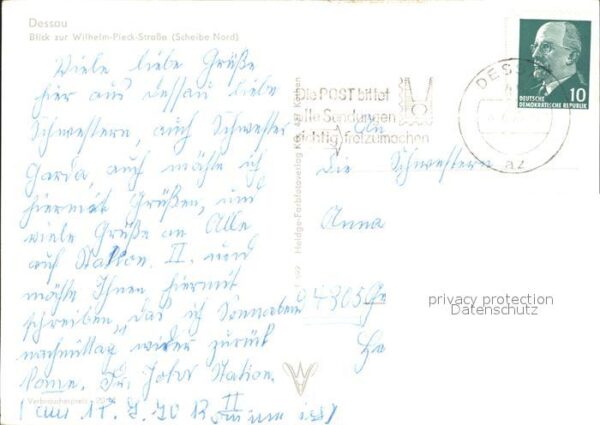 Dessau
Blick zur Wilhelm-Pieck-Straße (Scheibe Nord)
Viele liebe Grüße
hier aus Dessau liebe
Schwestern, auch Schwester
auch möchte ich
hiermit Grüßen, und
viele Grüße an Alle
auf Station. II. und
möchte Ihnen hiermit
schreiben, das ich Sonnabend
nachmittag wieder zurück
Station.
II
Die POST bittet
alle Sendungen
richtig freizumachen
DESSAU
az
10
DEUTSCHE
DEMOKRATISCHE REPUBLIK
An
Die Schwestern
Anna
privacy protection
Datenschutz